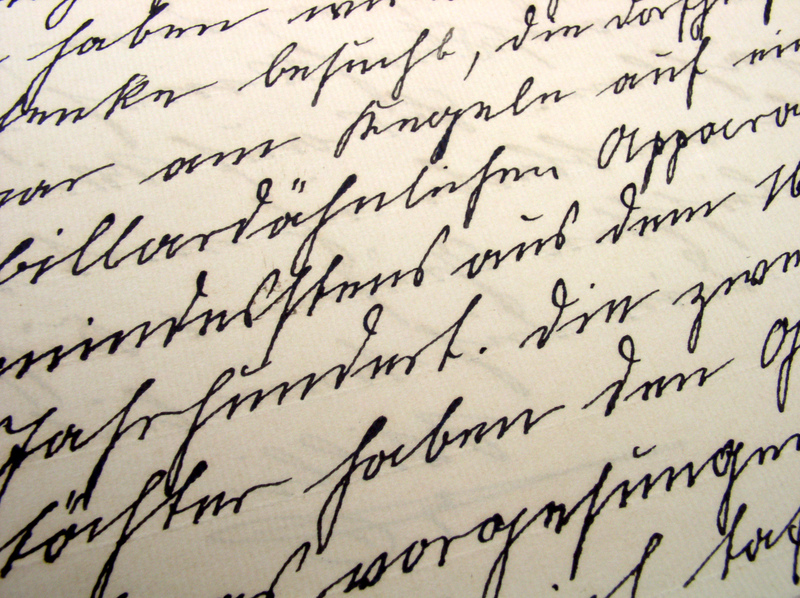 haben wir
besucht, die dorf
war am Kegeln auf ein
billardähnlichen Appara
mindestens aus dem 16
Jahrhundert. Die zwe
töchter haben den G
vorgesungen
ich tat